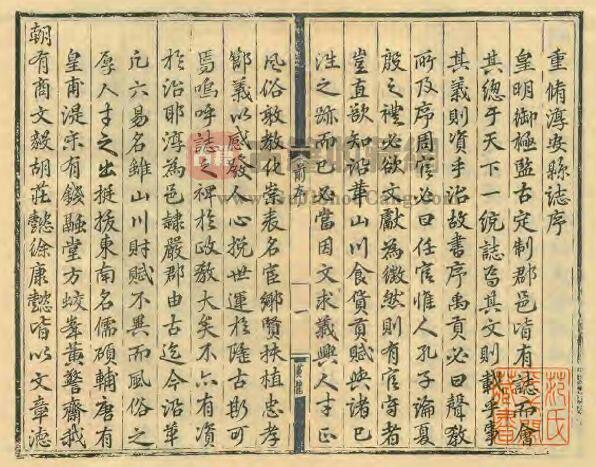 重脩淳安縣誌序
皇明御極監古定制郡邑皆有誌而會
其總于天下一統誌焉其文則載乎事
其義則資乎治故書序禹貢必曰聲教
所及序周官必曰任官惟人孔子論夏
殷之禮必欲文獻為徵然則有官守者
豈直欲知沿革山川食貨貢賦與諸已
往之跡而已必當因文求義興人才正
前序 一
風俗敦教化案表名宦鄉賢扶植忠孝
節義以感發人心挽世運於隆古斯可
焉嗚呼誌之裨於政教大矣不亦有資
於治耶淳為邑隸嚴郡由古迄今沿革
凡六易名雖山川財賦不異而風俗之
厚人才之出挺拔東南名儒碩輔唐有
皇甫湜宋有錢融堂方蛟峯黃警齋我
朝有商文毅胡莊懿徐康懿皆以文章德
范氏
藏書